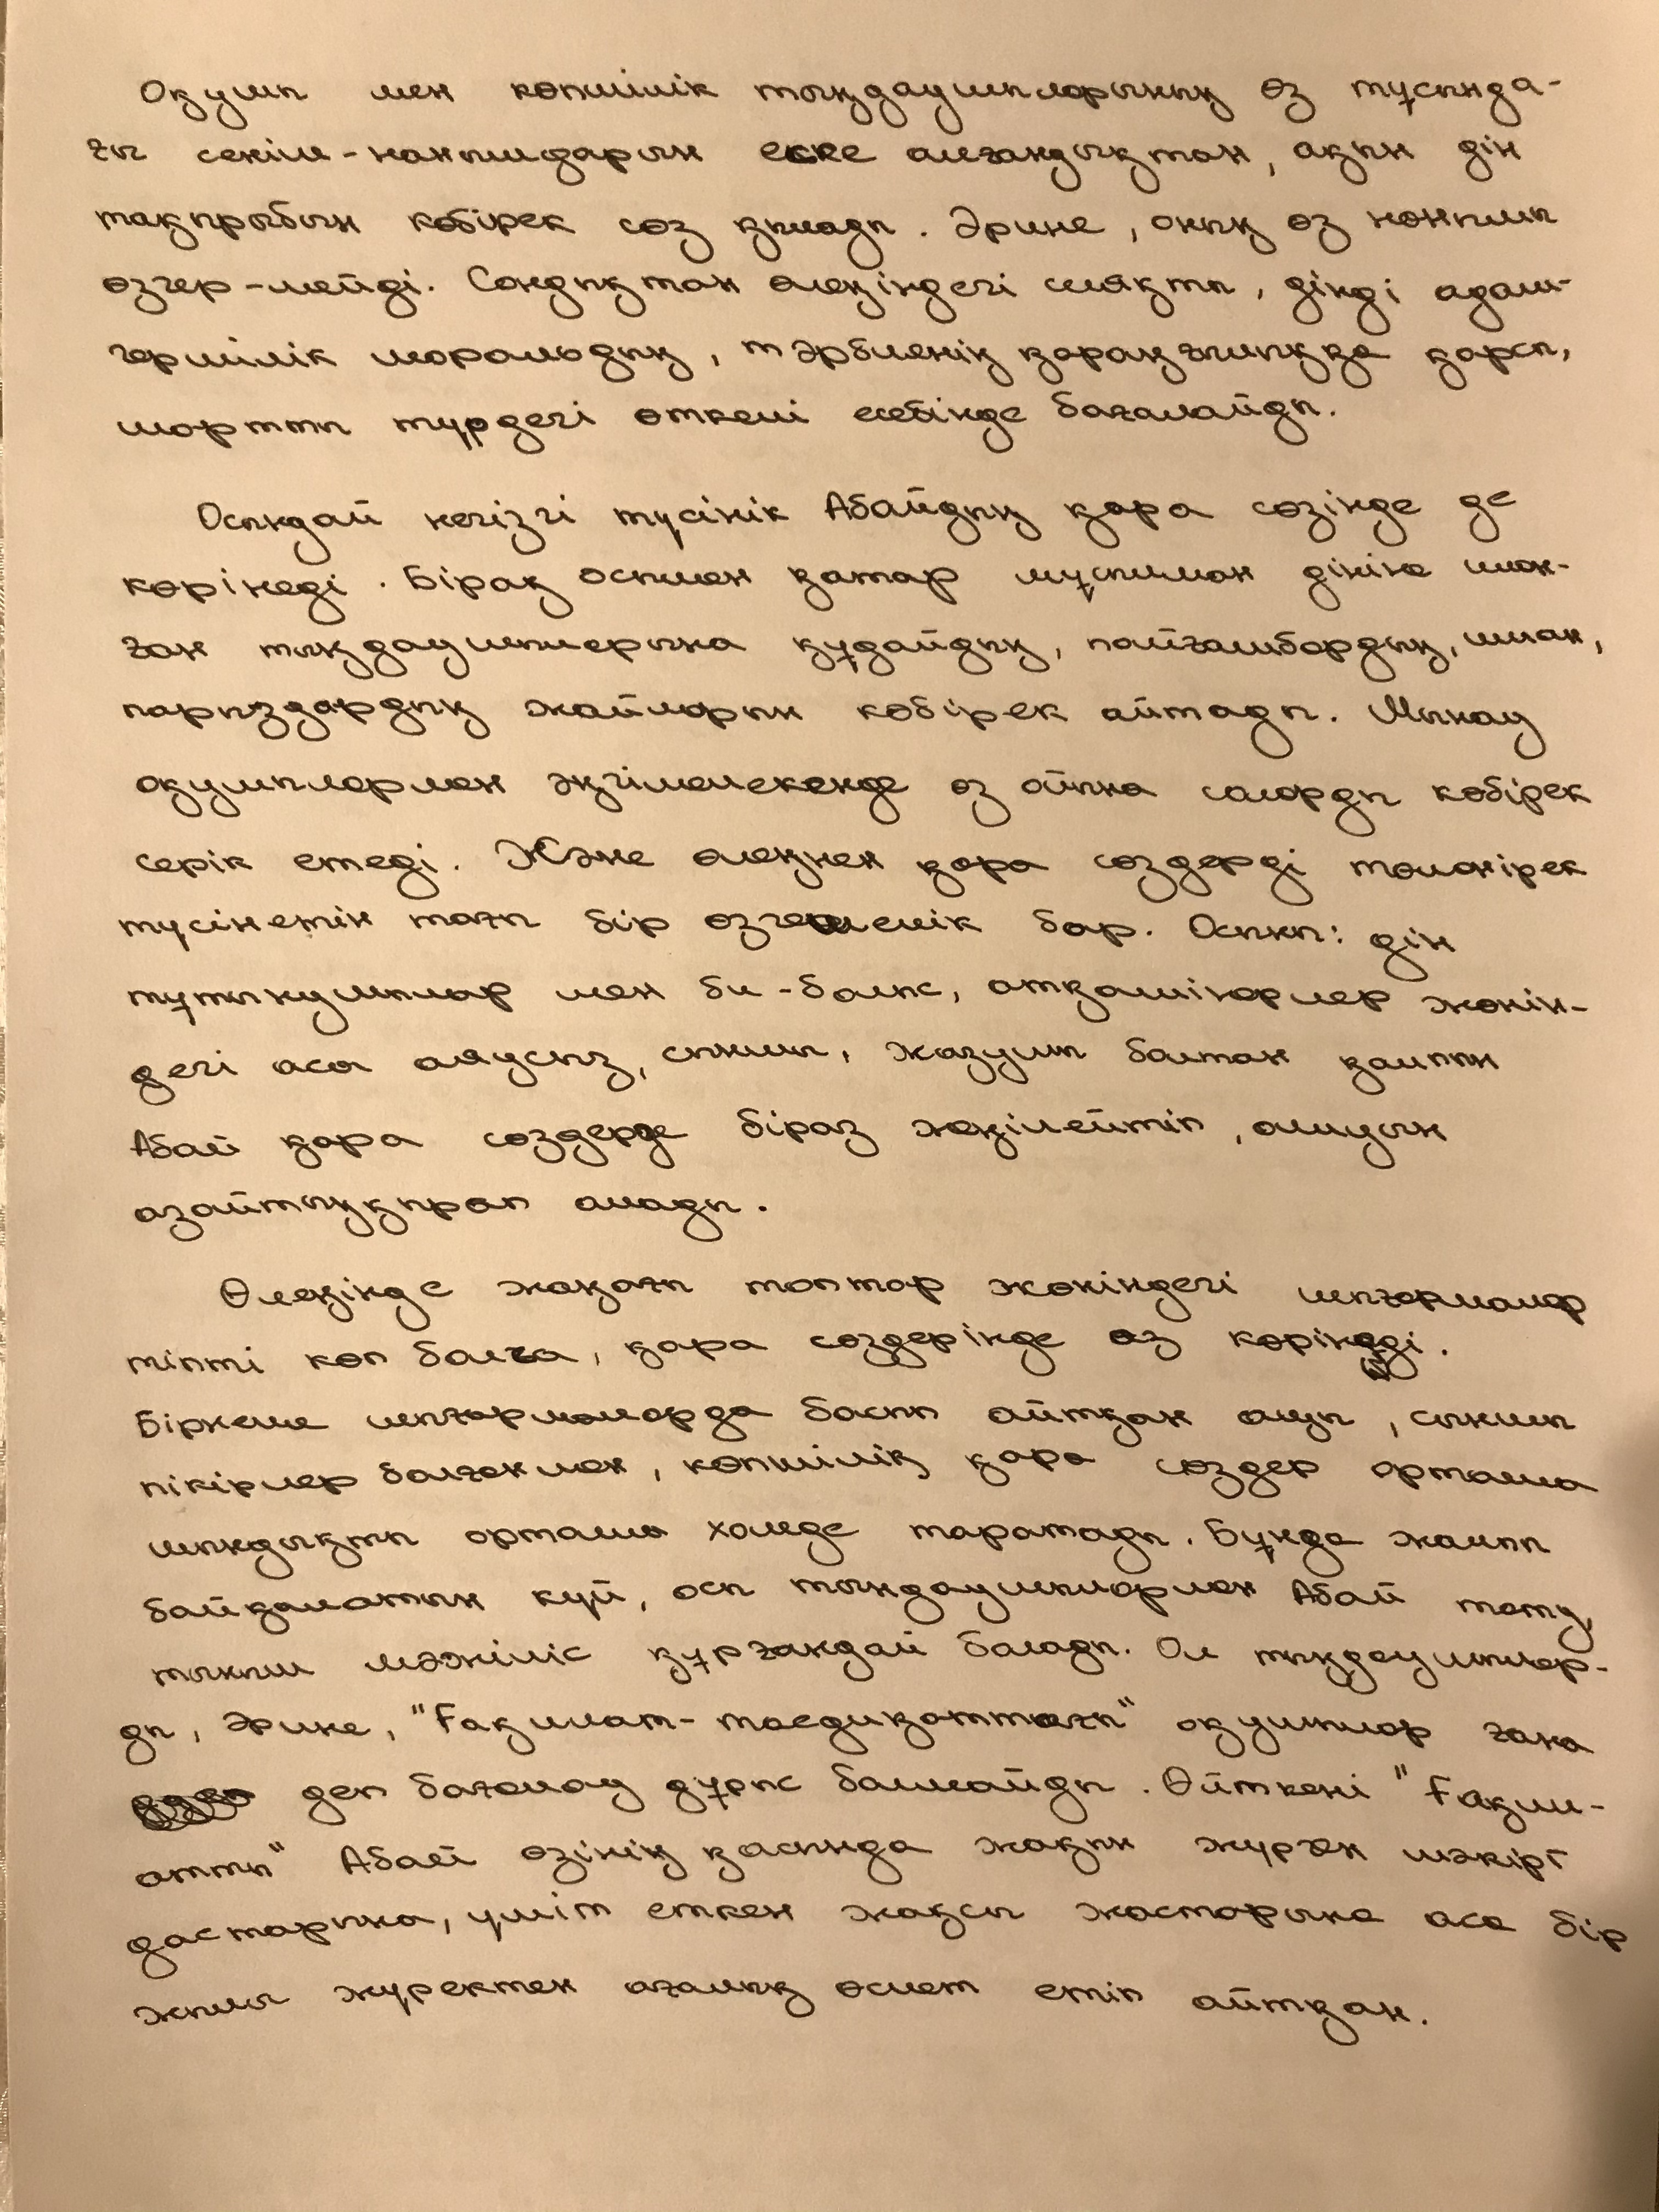 Оқушы мен көпшілік тыңдаушыларының өз тұсында-
ғы сенім-нанымдарын еске алғандықтан, ақын дін
тақырыбын көбірек сөз қылады. Әрине, оның өз нанымы
өзгер-мейді. Сондықтан өлеңіндегі сияқты, дінді адам-
гершілік моральдың, тәрбиенің қараңғылыққа қарсы,
шартты түрдегі өткелі есебінде бағалайды.
Осындай негізгі түсінік Абайдың қара сөзінде де
көрінеді. Бірақ осымен қатар мұсылман дініне илан-
ған тыңдаушыларына құдайдың, пайғамбардың, иман,
парыздардың жайларын көбірек айтады. Мынау
оқушылармен әңгімелескенде өз ойына соларды көбірек
серік етеді. Және өлеңнен қара сөздерді төменірек
түсінетін тағы бір өзгешелік бар. Осыны: дін
тұтынушылар мен би-болыс, атқамінерлер жөнін-
дегі аса аяусыз, сыншы, жазушы болған қалпын
Абай қара сөздерде біраз жеңілейтіп, ашуын
азайтыңқырап алады.
Өлеңінде жаңағы топтар жөніндегі шығармалар
тіпті көп болса, қара сөздерінде аз көрінеді.
Бірнеше шығармаларда басып айтқан ащы, сыншы
пікірлер болғанмен, көпшілік қара сөздер орташа
шындықты орташа халде таратады. Бұнда жалпы
байқалатын күй, осы тыңдаушылармен Абай тату,
тыныш мәжіліс құрғандай болады. Ол тыңдаушылар-
ды, әрине, "Ғақилат-тасдиқаттағы" оқушылар ғана
деп бағалау дұрыс болмайды. Өйткені "Ғақли-
атты" Абай өзінің қасында жақын жүрген шәкірт
достарына, үміт еткен жақсы жастарына аса бір
жылы жүректен ағалық өсиет етіп айтқан.